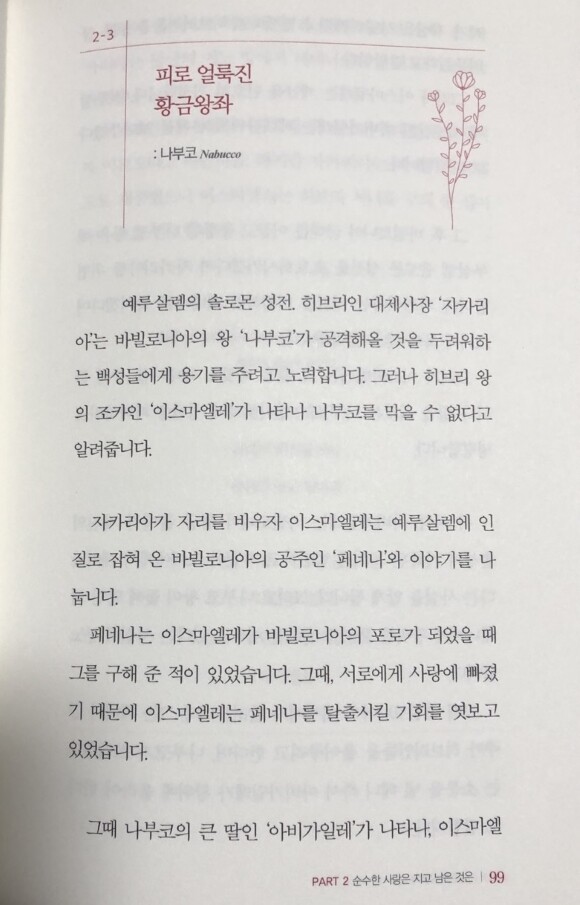 2-3
피로 얼룩진
황금왕좌
: 나부코 Nabucco
예루살렘의 솔로몬 성전. 히브리인 대제사장 ‘자카리
아’는 바빌로니아의 왕 ‘나부코’가 공격해올 것을 두려워하
는 백성들에게 용기를 주려고 노력합니다. 그러나 히브리 왕
의 조카인 ‘이스마엘레’가 나타나 나부코를 막을 수 없다고
알려줍니다.
자카리아가 자리를 비우자 이스마엘레는 예루살렘에 인
질로 잡혀 온 바빌로니아의 공주인 ‘페네나’와 이야기를 나
눕니다.
페네나는 이스마엘레가 바빌로니아의 포로가 되었을 때
그를 구해 준 적이 있었습니다. 그때, 서로에게 사랑에 빠졌
기 때문에 이스마엘레는 페네나를 탈출시킬 기회를 엿보고
있었습니다.
그때 나부코의 큰 딸인 ‘아비가일레’가 나타나, 이스마엘
PART 2 순수한 사랑은 지고 남은 것은 | 99